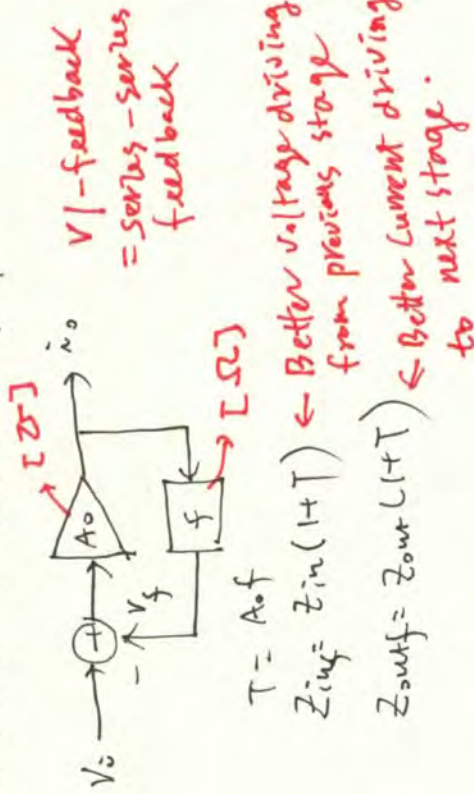 [℧]
A₀
i₀
VI-feedback
= series-series
feedback
Vi
+
-
Vf
f
[Ω]
T = A₀f
Zinf = Zin(1+T) ← Better voltage driving
from previous stage
Zoutf = Zout(1+T) ← Better current driving
to next stage.